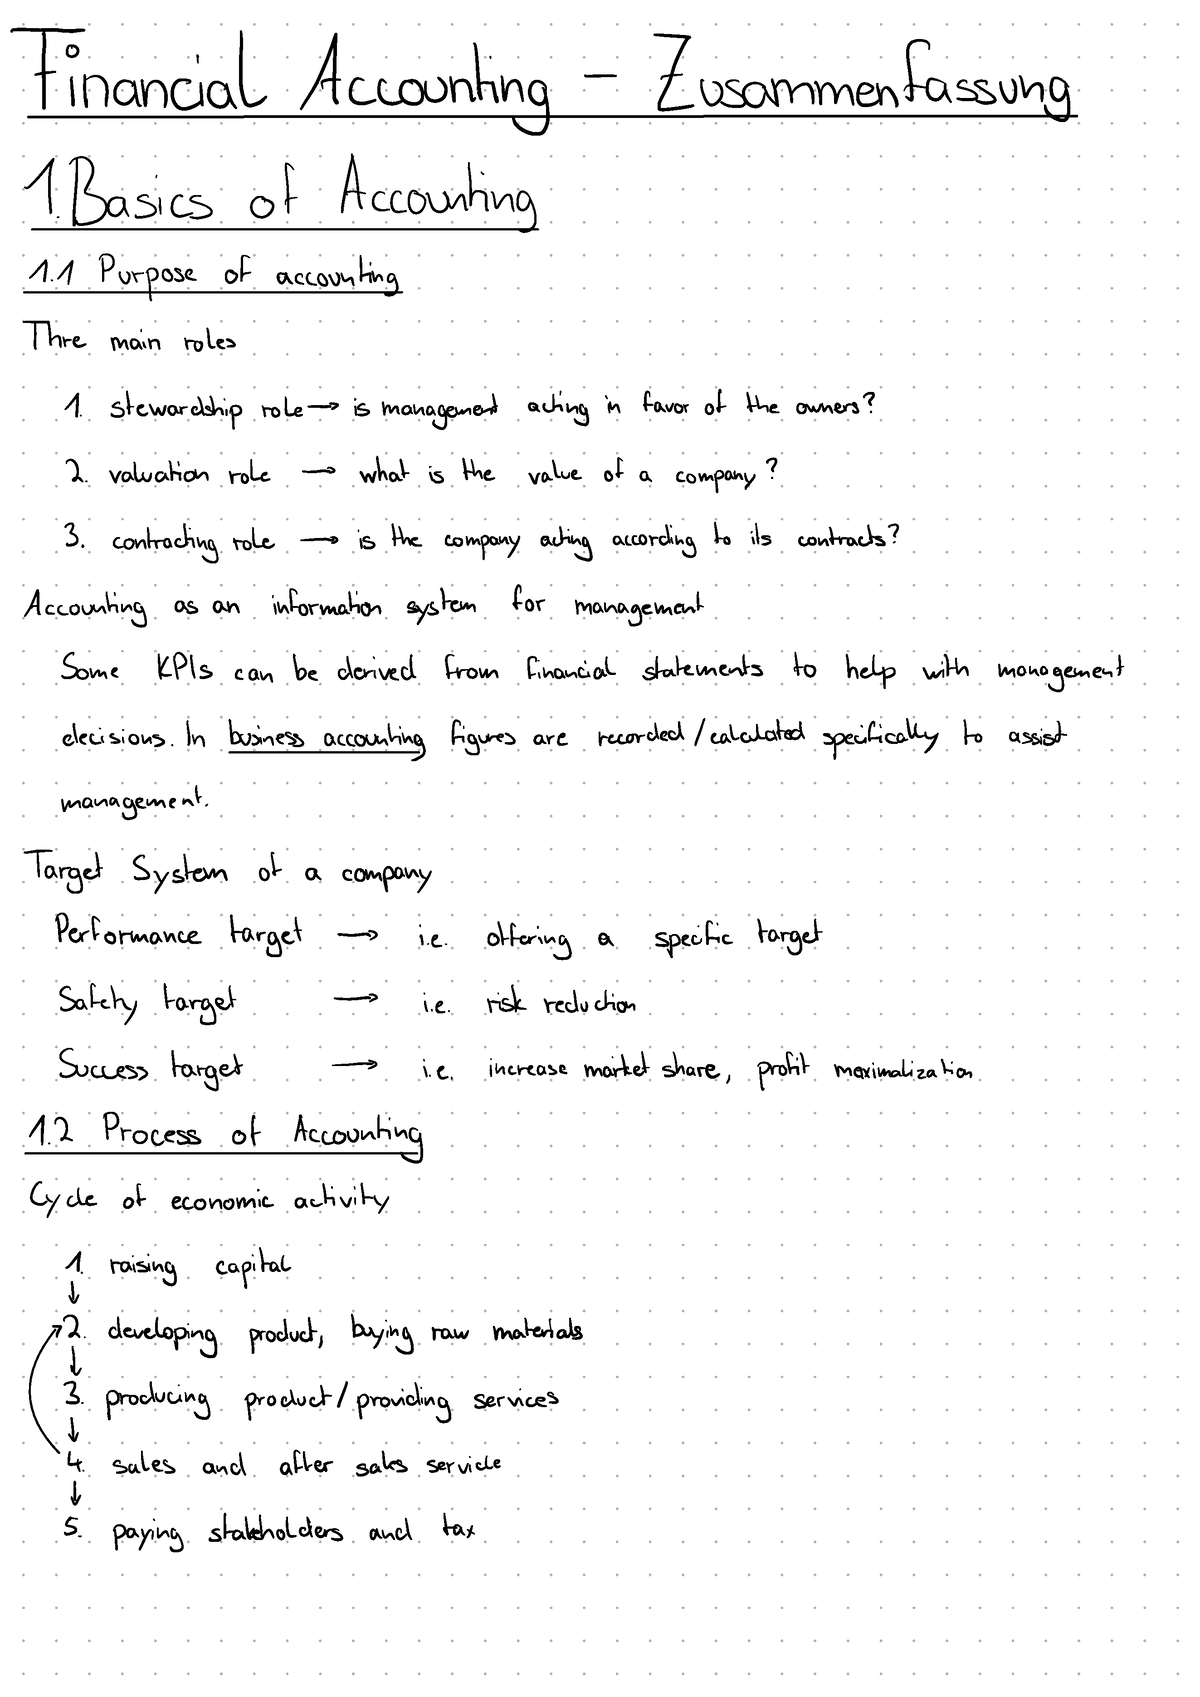 Financial Accounting – Zusammenfassung
1. Basics of Accounting
1.1 Purpose of accounting
Thre main roles
1. stewardship role → is management acting in favor of the owners?
2. valuation role → what is the value of a company?
3. contracting role → is the company acting according to its contracts?
Accounting as an information system for management
Some KPIs can be derived from financial statements to help with management
decisions. In business accounting figures are recorded/calculated specifically to assist
management.
Target System of a company
Performance target → i.e. offering a specific target
Safety target → i.e. risk reduction
Success target → i.e. increase market share, profit maximalization
1.2 Process of Accounting
Cycle of economic activity
1. raising capital
↓
2. developing product, buying raw materials
↓
3. producing product/providing services
↓
4. sales and after sales service
↓
5. paying stakeholders and tax